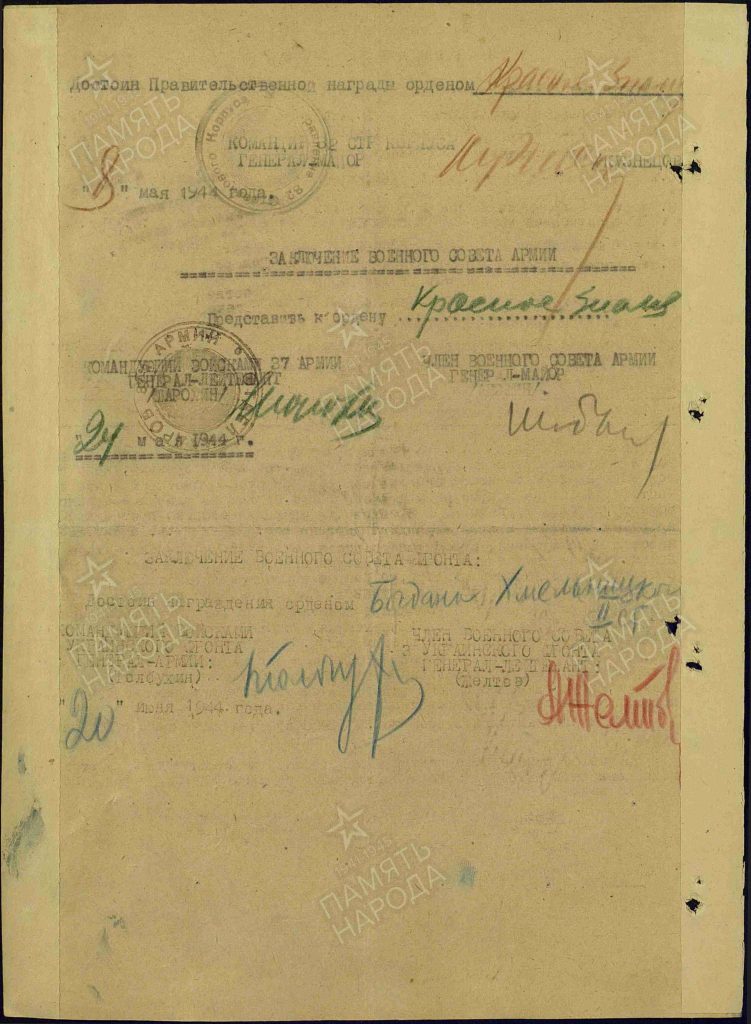 Достоин Правительственной награды орденом Красное Знамя
КОМАНДИР 82 СТР КОРПУСА
ГЕНЕРАЛ-МАЙОР КУЗНЕЦОВ
"8" мая 1944 года.
ЗАКЛЮЧЕНИЕ ВОЕННОГО СОВЕТА АРМИИ
Представить к ордену Красное Знамя
КОМАНДУЮЩИЙ ВОЙСКАМИ 37 АРМИИ
ГЕНЕРАЛ-ЛЕЙТЕНАНТ
/ШАРОХИН/
ЧЛЕН ВОЕННОГО СОВЕТА АРМИИ
ГЕНЕРАЛ-МАЙОР
мая 1944 г.
ЗАКЛЮЧЕНИЕ ВОЕННОГО СОВЕТА ФРОНТА:
Достоин награждения орденом Богдана Хмельницкого
II ст.
КОМАНДУЮЩИЙ ВОЙСКАМИ
3 УКРАИНСКОГО ФРОНТА
ГЕНЕРАЛ-АРМИИ:
(Толбухин)
ЧЛЕН ВОЕННОГО СОВЕТА
3 УКРАИНСКОГО ФРОНТА
ГЕНЕРАЛ-ЛЕЙТЕНАНТ:
(Желтов)
Желтов
"20" июня 1944 года.
ПАМЯТЬ
НАРОДА
1941-1945